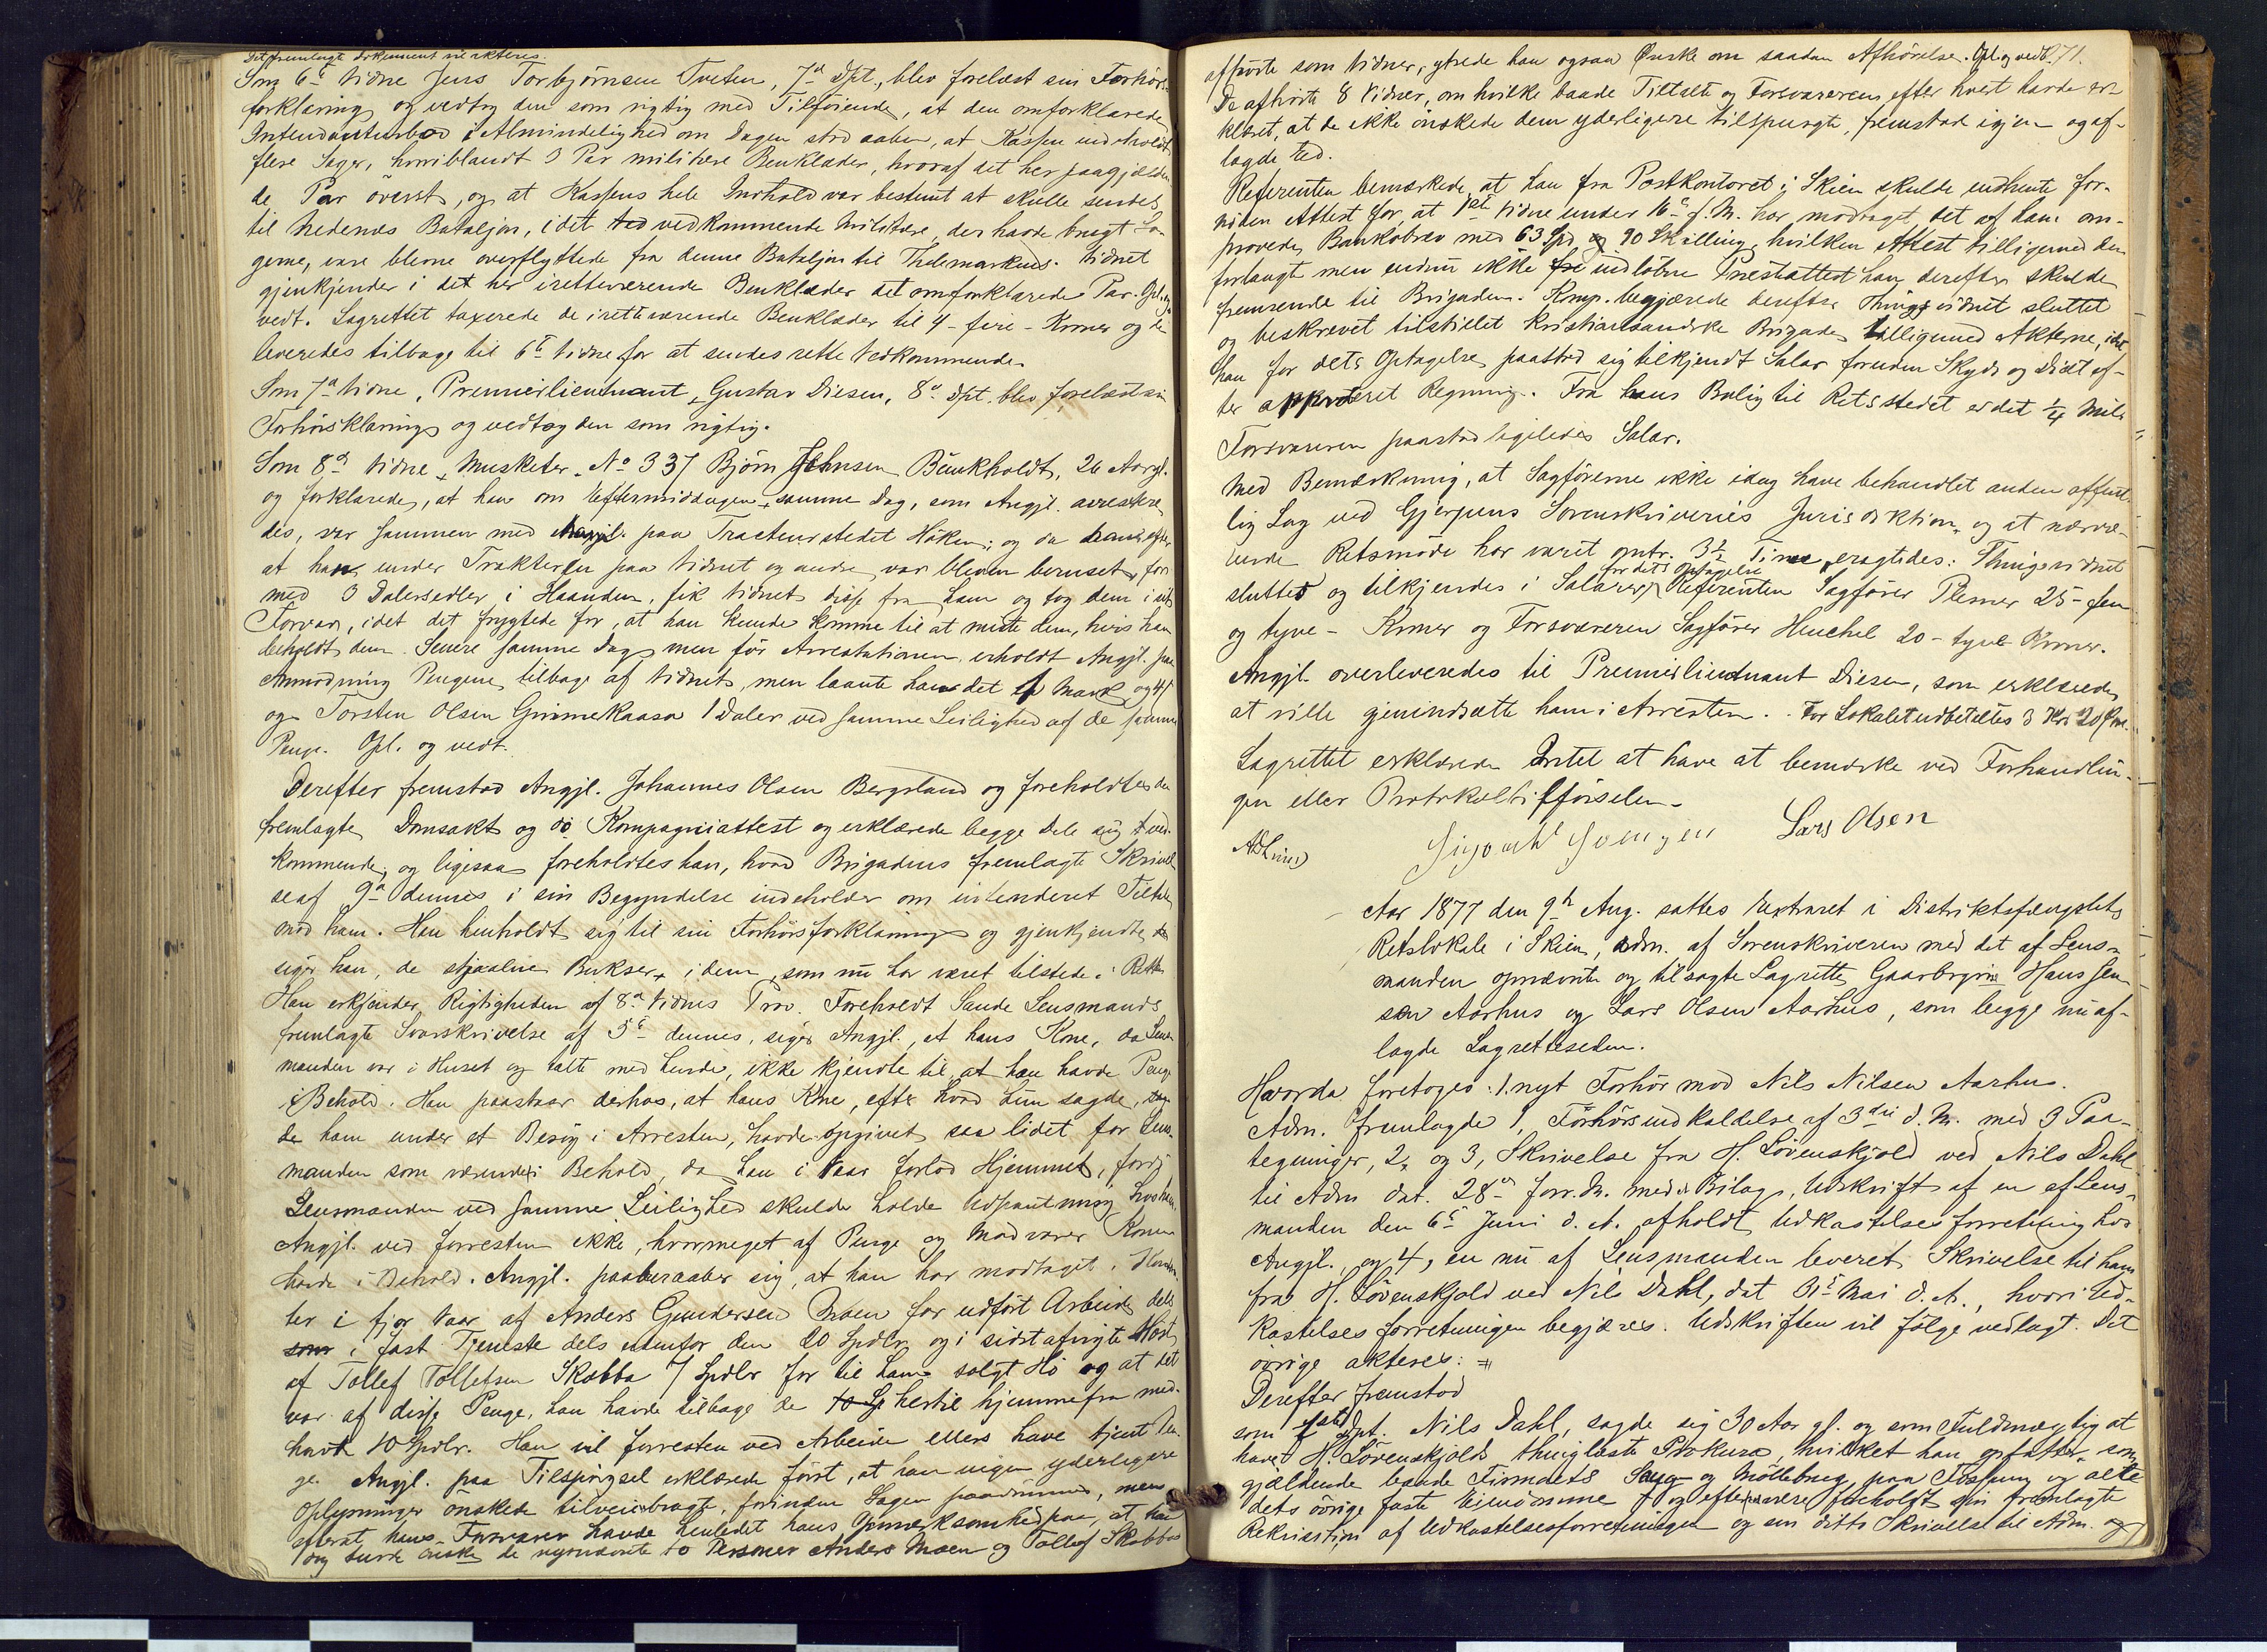 Det fremlagte Dokument vil akteres.
Som 6te Vidne Jens Torbjørnsen Tveten, 7de Dpt., blev forelæst sin Forhørs-
forklaring og vedtog den som rigtig med Tilføiende, at den omforklarede
Intendanturbod i Almindelighed om Dagen stod aaben, at Kassen indeholdt
flere Sager, hvoriblandt 3 Par militære Benklæder, hvoraf det her paagjælden-
de Par øverst, og at Kassens hele Indhold var bestemt at skulle sendes
til Nedenæs Bataljon, idet vedkommende Militære, der havde brugt Sa-
gerne, vare blevne overflyttede fra denne Bataljon til Thelemarkens. Vidnet
gjenkjender i det her iretteværende Benklæder det omforklarede Par. Opl. og
vedt. Lagrettet taxerede de iretteværende Benklæder til 4 - fire - Kroner og de
leveredes tilbage til 6te Vidne for at sendes rette Vedkommende.
Som 7de Vidne, Premierlieutnant, Gustav Diesen, 8de Dpt. blev forelæst sin
Forhørsklaring og vedtog den som rigtig.
Som 8de Vidne, Musketer No 337 Bjørn Johnsen Bunkholdt, 26 Aar gl.
og forklarede, at han om Eftermiddagen samme Dag, som Angjl. arrestere-
des, var sammen med Angjl. paa Tracteurstedet Håken; og da denne efter
at han under Trakteren paa Vidnet og andre var bleven beruset, for
med 3 Dalersedler i Haanden, fik Vidnet disse fra ham og tog dem i sit
Forvar, idet det frygtede for, at han kunde komme til at miste dem, hvis han
beholdt dem. Senere samme Dag men før Arrestationen erholdt Angjl. paa
Anmodning Pengene tilbage af Vidnet, men laante ham det 1 Mark
og Torsten Olsen Grimekaasa 1 Daler ved samme Leilighed af de samme
Penge. Opl. og vedt.
Derefter fremstod Angjl. Johannes Olsen Bergsland og foreholdtes den
fremlagte Domsakt og do Kompagniattest og erklærede begge Dele sig ved-
kommende, og ligesaa foreholdtes han, hvad Brigadens fremlagte Skrivel-
se af 9de dennes i sin Begyndelse indeholder om intenderet Tiltale
mod ham. Han henholdt sig til sin Forhørsforklaring og gjenkjendte,
siger han, de stjaalne Buxser i dem, som nu har været tilstede i Retten
Han erkjender Rigtigheden af 8de Vidnes Prov. Foreholdt Sande Lensmands
fremlagte Svarskrivelse af 5te dennes, siger Angjl., at hans Kone, da Lens-
manden var i Huset og talte med hende, ikke kjendte til, at han havde Penge
i Behold. Han paastaar derhos, at hans Kone, efter hvad hun sagde,
de ham under et Besøg i Arresten, havde opgivet saa lidet for Lens-
manden som værende i Behold, da han i Vaar forlod Hjemmet, fordi
Lensmanden ved samme Leilighed skulde holde Udpantning hos ham.
Angjl. ved forresten ikke, hvormeget af Penge og Madvarer Konen
havde i Behold. Angjl. paaberaaber sig, at han har modtaget i Kontan-
ter i fjor Vaar af Anders Gundersen Moen for udført Arbeide dels
som i fast Tjeneste dels udenfor den 20 Spdlr. og i sidst afvigte Høst
af Tollef Tollefsen Skobba 7 Spdlr for til ham solgt Hø og at det
var af disse Penge, han havde tilbage de hertil hjemmefra med-
havte 10 Spdlr. Han vil forresten ved Arbeide ellers have tjent Pen-
ge. Angjl. paa Tilspørgsel erklærede først, at han ingen yderligere
Oplysninger ønskede tilveiebragte, forinden Sagen paadømmes, men
efterat hans Forsvarer havde henledet hans Opmærksomhed paa, at han
dog burde ønske de nysnævnte to Personer Anders Moen og Tollef Skobba
afhørte som Vidner, ytrede han ogsaa Ønske om saadan Afhørelse. Opl. og vedt. 71.
De afhørte 8 Vidner, om hvilke baade Tiltalte og Forsvareren efter hvert havde er-
klæret, at de ikke ønskede dem yderligere tilspurgte, fremstod igjen og af-
lagde Ed.
Referenten bemærkede, at han fra Postkontoret i Skien skulde indhente for-
nøden Attest for, at 1ste Vidne under 16de f. M. har modtaget det af ham om-
provede Bankobrev med 63 Spd. 90 Skilling, hvilken Attest tilligemed den
forlangt men endnu ikke indløbne Prestattest han derefter skulde
fremsende til Brigaden. Komp. begjærede derefter Thingsvidnet sluttet
og beskrevet tilstillet Kristianssandske Brigade tilligemed Akterne, idet
han for dets Optagelse paastod sig tilkjendt Salær foruden Skyds og Diæt ef-
ter approberet Regning. Fra hans Bolig til Retsstedet er det 1/4 Mil.
Forsvareren paastod ligeledes Salær.
Med Bemærkning, at Sagførerne ikke idag have behandlet anden offent-
lig Sag ved Gjerpens Sorenskriveries Jurisdiktion, og at nærvæ-
rende Retsmøde har varet omtr. 3½ Time, eragtedes: Thingsvidnet
for dets Optagelse
sluttet og tilkjendes i Salærer Referenten Sagfører Plesner 25 - fem
og tyve - Kroner og Forsvareren Sagfører Henchel 20 - tyve Kroner.
Angjl. overleveredes til Premierlieutnant Diesen, som erklærede
at ville gjenindsætte ham i Arresten. For Lokalet udbetaltes 3 Kr 20 Øre.
Lagrettet erklærede Intet at have at bemærke ved Forhandlin-
gen eller Protokoltilførselen.
Lars Olsen
Aar 1877 den 9de Aug. sattes Extraret i Distriktsfængslets
Retslokale i Skien, adm. af Sorenskriveren med det af Lens-
manden opnævnte og tilsagte Lagrette, Gaarbrugerne Hans Jen-
sen Aarhus og Lars Olsen Aarhus, som begge nu af-
lagde Lagretteseden.
Hvorda foretoges: 1. nyt Forhør mod Nils Nilsen Aarhus.
Adm. fremlagde 1, Forhørsindkaldelse af 3die d. M. med 3 Paa-
tegninger, 2, og 3, Skrivelse fra H. Løvenskjold ved Nils Dahl
til Adm dat. 28de forr. M. med Bilag, Udskrift af en af Lens-
manden den 6te Juni d. A. afholdt Udkastelsesforretning hos
Angjl. og 4, en nu af Lensmanden leveret Skrivelse til ham
fra H. Løvenskjold ved Nils Dahl, dat 31te Mai d. A., hvori Ud-
kastelsesforretningen begjæres. Udskriften vil følge vedlagt. Det
øvrige akteres:
Derefter fremstod
som 1ste Dpt. Nils Dahl, sagde sig 30 Aar gl. og som Fuldmægtig at
have H. Løvenskjolds thinglæste Prokura, hvilket han opfatter som
gjældende baade Firmaets Saug og Møllebrug paa Fossum og alle
dets øvrige faste Eiendomme og efter foreholdt sin fremlagte
Rekvisition af Udkastelsesforretningen og sin ditto Skrivelse til Adm. og